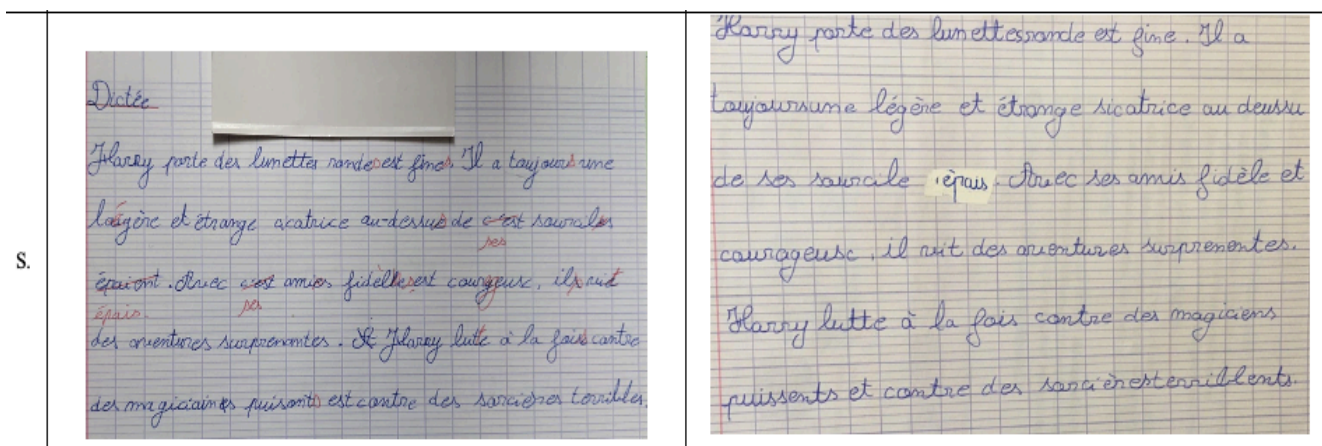 S.
Dictée
Harry porte des lunettes rondes est fines. Il a toujours une
légère et étrange acatrice au-dessus de c'est sourciles
ses
épaiont. Avec c'est amies fidèlles est courgeux, ils vit
épais. ses
des aventures surprenantes. Harry lutte à la fois contre
des magiciains puisants est contre des sorcières terribles.
Harry porte des lunettesronde est fine. Il a
toujoursune légère et étrange sicatrice au deussu
de ses sourcile épais. Avec ses amis fidèle et
courageuse, il vit des aventures surprenentes.
Harry lutte à la fois contre des magiciens
puissents et contre des sorcièresterriblents.